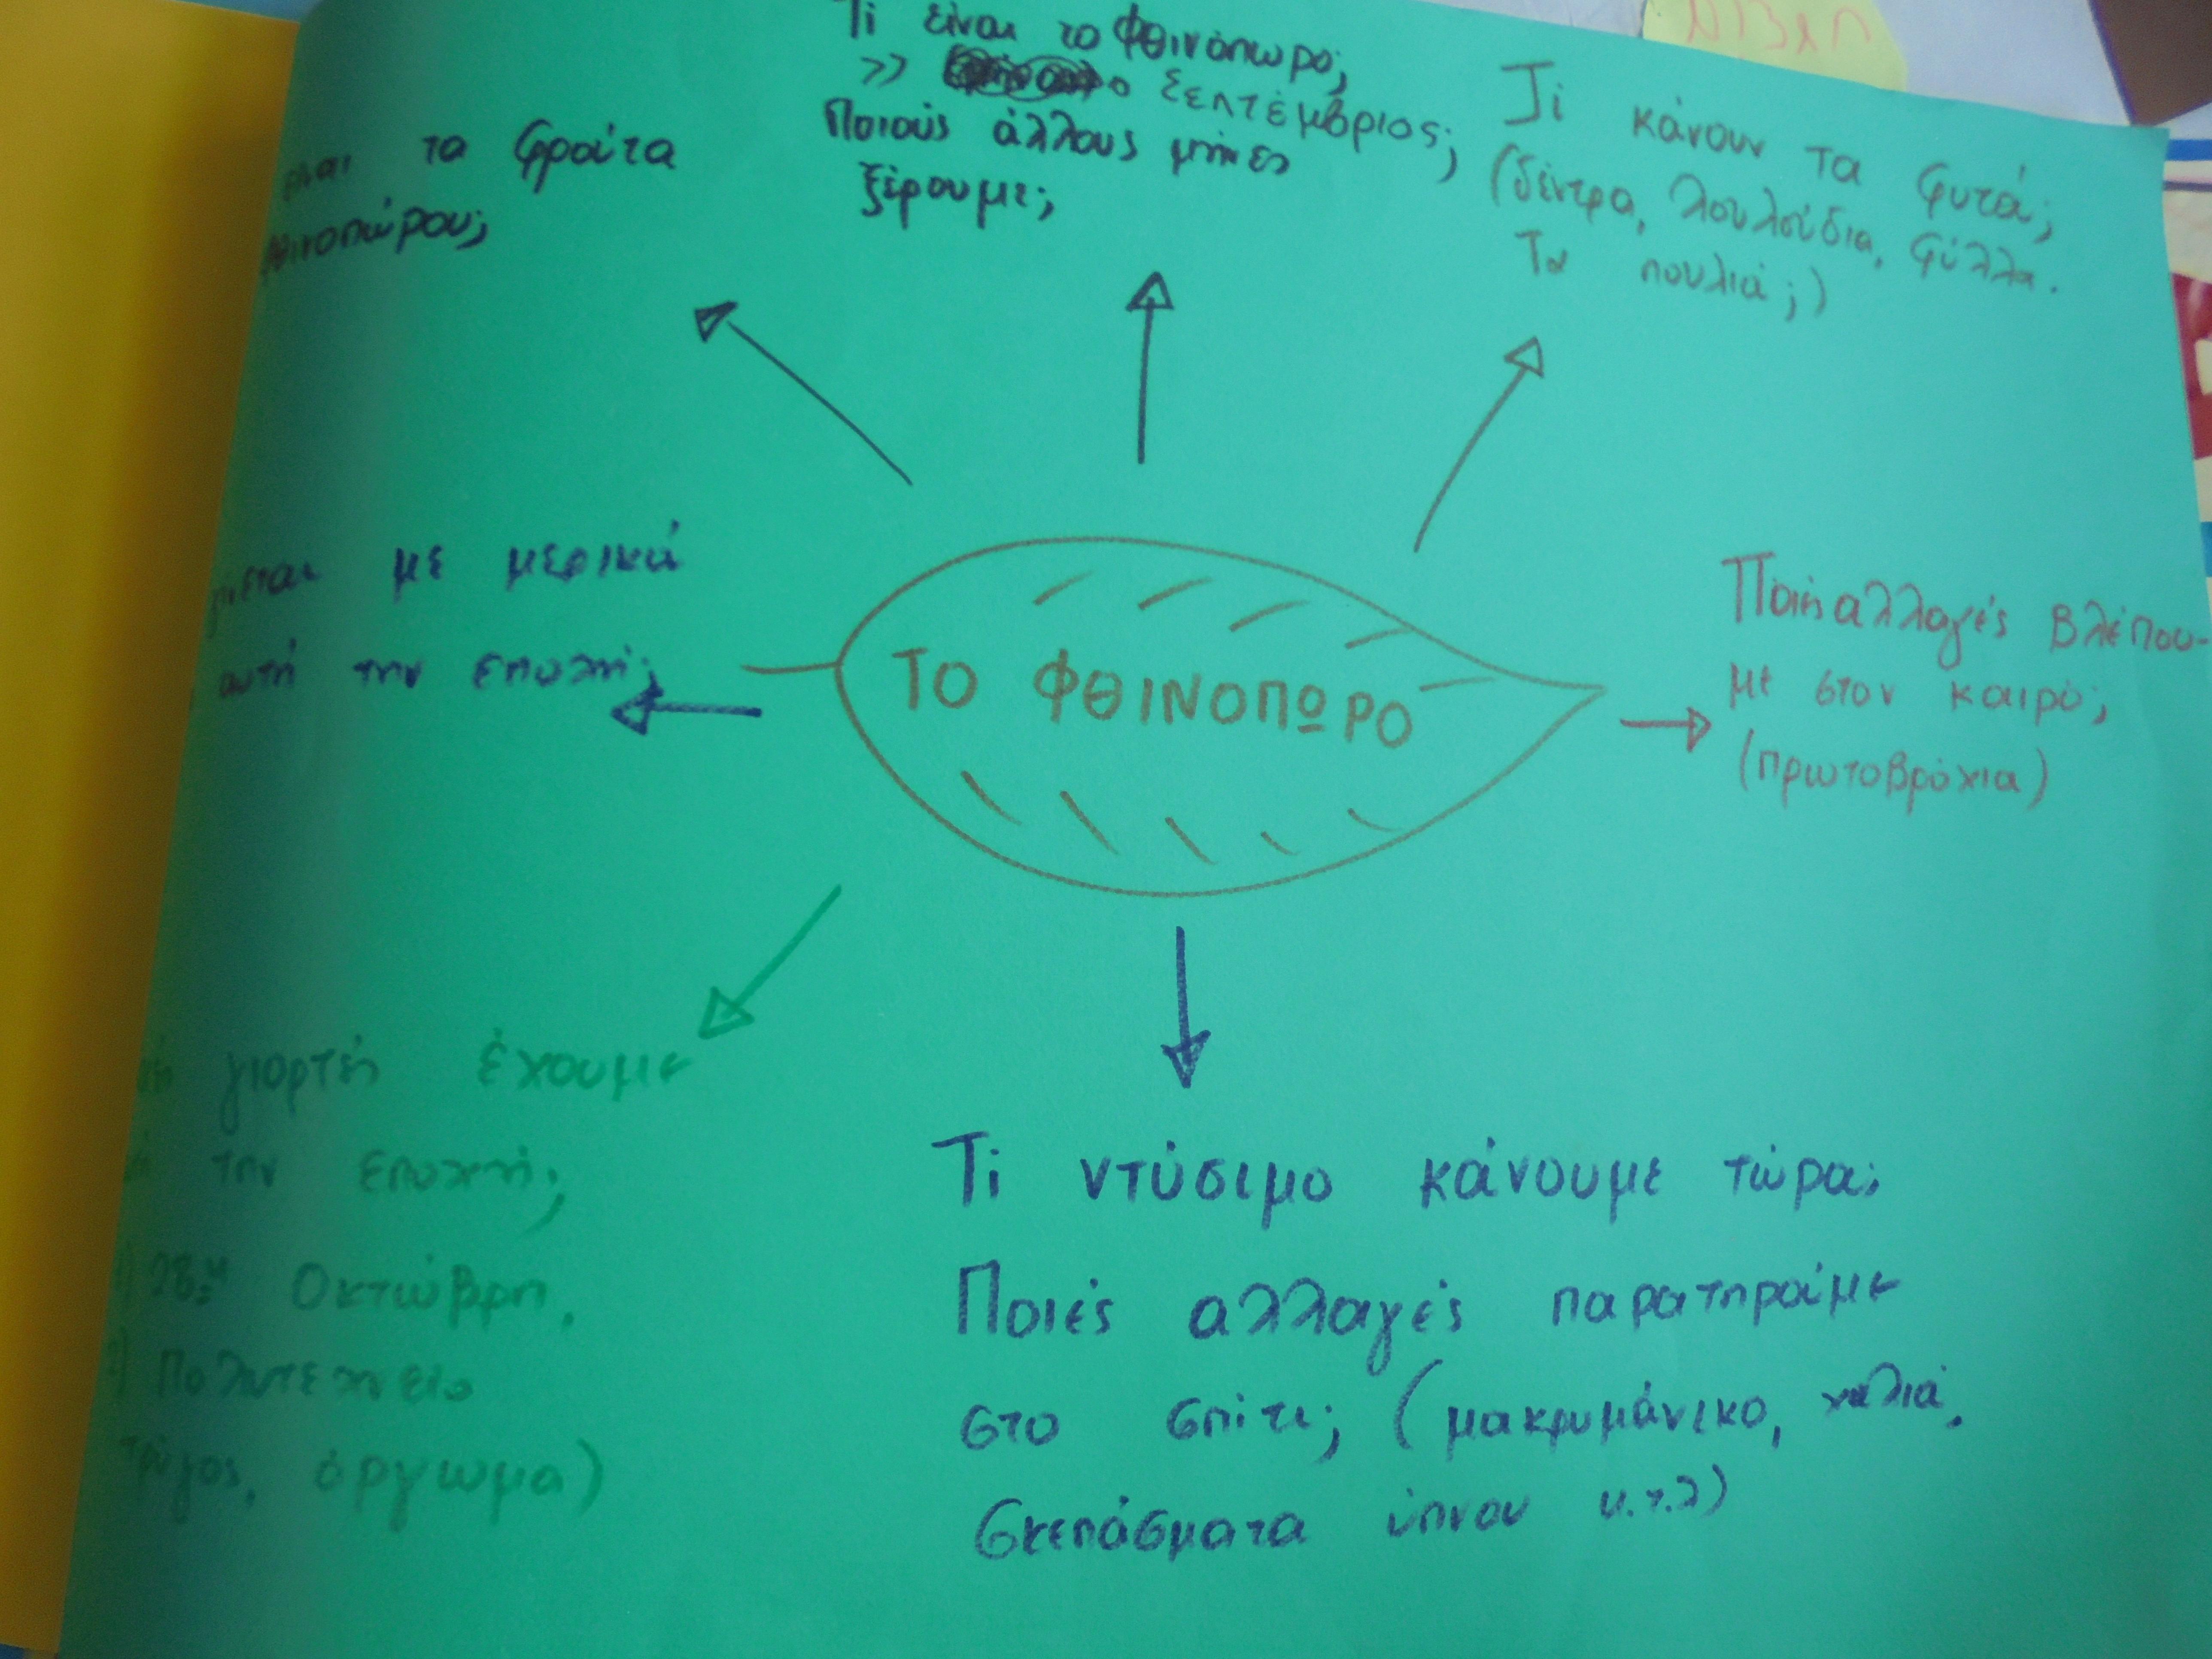 Τι είναι το Φθινόπωρο;
>> ο Σεπτέμβριος;
Ποιούς άλλους μήνες
ξέρουμε;
τα φρούτα
Τι κάνουν τα φυτά;
(δέντρα, λουλούδια, φύλλα.
Τα πουλιά;)
με μερικά
αυτή την εποχή;
ΤΟ ΦΘΙΝΟΠΩΡΟ
αλλαγές βλέπου-
με στον καιρό;
(πρωτοβρόχια)
γιορτή έχουμε
την εποχή;
28η Οκτώβρη,
Πολυτεχνείο
όργωμα)
Τι ντύσιμο κάνουμε τώρα;
Ποιές αλλαγές παρατηρούμε
στο σπίτι; (μακρυμάνικο, χαλιά,
σκεπάσματα ύπνου κ.τ.λ)